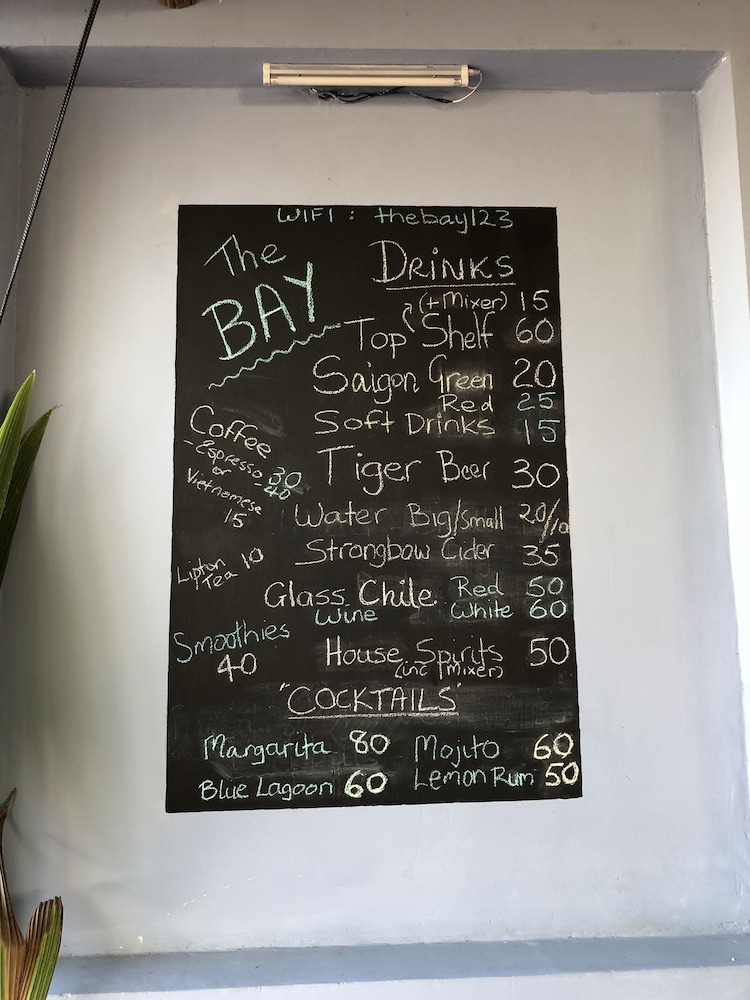 WIFI : thebay123
The
BAY
DRINKS
(+Mixer) 15
Top Shelf 60
Saigon Green 20
Red 25
Soft Drinks 15
Tiger Beer 30
Water Big/Small 20/10
Strongbow Cider 35
Glass Chile Red 50
Wine White 60
House Spirits 50
(inc Mixer)
Coffee
- Espresso - 30
- 40
or
Vietnamese
15
Lipton 10
Tea
Smoothies
40
"COCKTAILS"
Margarita 80 Mojito 60
Blue Lagoon 60 Lemon Rum 50